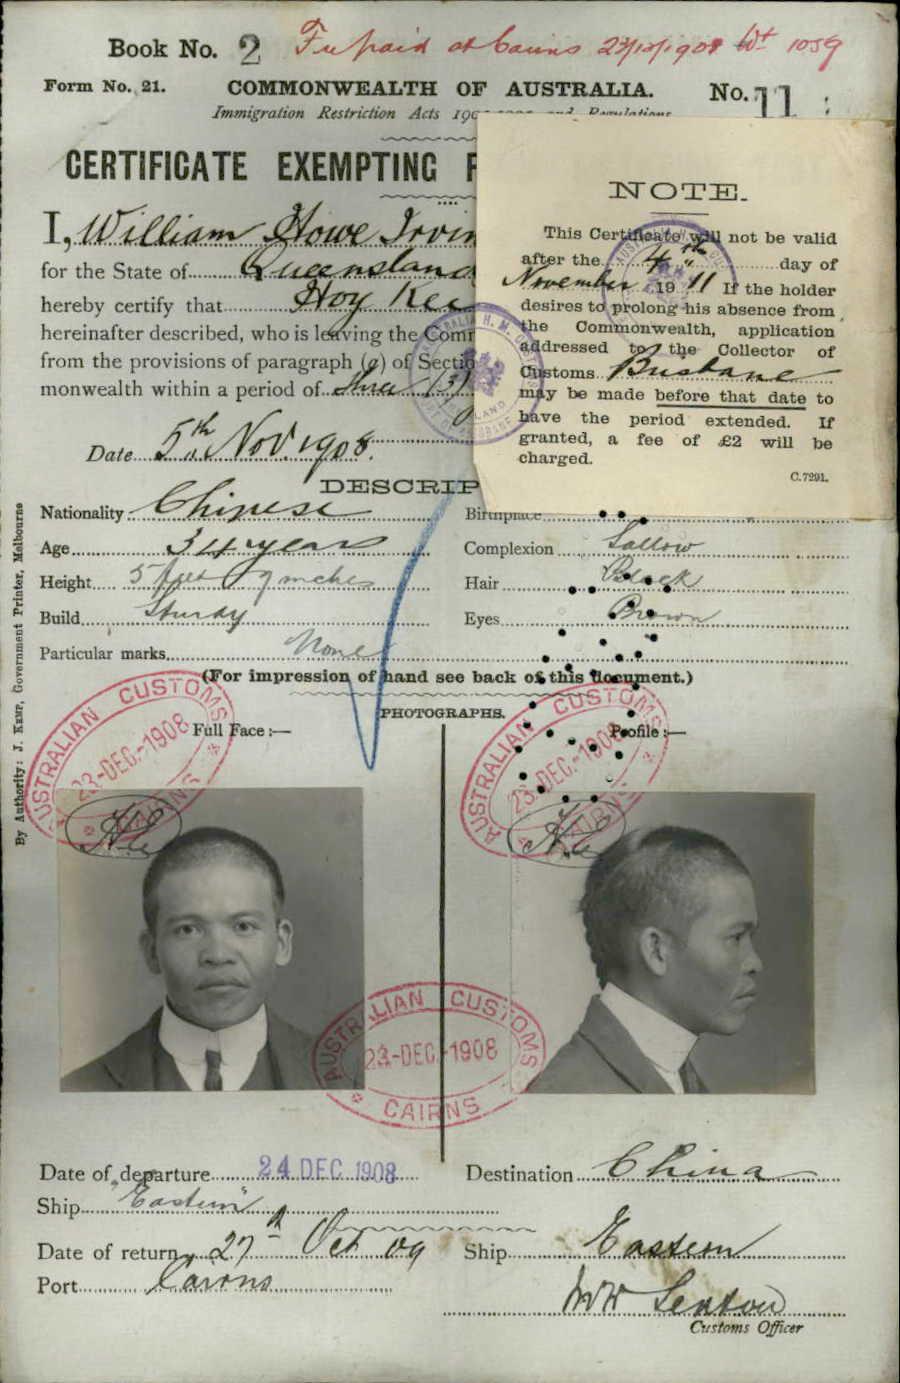 Book No. 2 Fee paid at Cairns 23/12/1908 1059
Form No. 21. COMMONWEALTH OF AUSTRALIA. No. 11
Immigration Restriction Acts and Regulations
CERTIFICATE EXEMPTING F
I, William Howe Irvin
for the State of Queensland
hereby certify that Hoy Kee
hereinafter described, who is leaving the Comm
from the provisions of paragraph (a) of Sectio
monwealth within a period of three (3)
Date 5th Nov. 1908.
NOTE.
This Certificate will not be valid
after the 4th day of
November 1911 If the holder
desires to prolong his absence from
the Commonwealth, application
addressed to the Collector of
Customs Brisbane
may be made before that date to
have the period extended. If
granted, a fee of £2 will be
charged.
C.7291.
DESCRIP
Nationality Chinese Birthplace
Age 34 years Complexion Sallow
Height 5 feet 9 inches Hair Black
Build Sturdy Eyes Brown
Particular marks None
(For impression of hand see back of this document.)
PHOTOGRAPHS.
Full Face :— Profile :—
By Authority: J. KEMP, Government Printer, Melbourne
AUSTRALIAN CUSTOMS
23-DEC.-1908
CAIRNS
AUSTRALIAN CUSTOMS
23-DEC.-1908
CAIRNS
AUSTRALIAN CUSTOMS
23-DEC.-1908
CAIRNS
Date of departure 24 DEC 1908 Destination China
Ship "Eastern"
Date of return 27th Oct 09 Ship Eastern
Port Cairns
Customs Officer